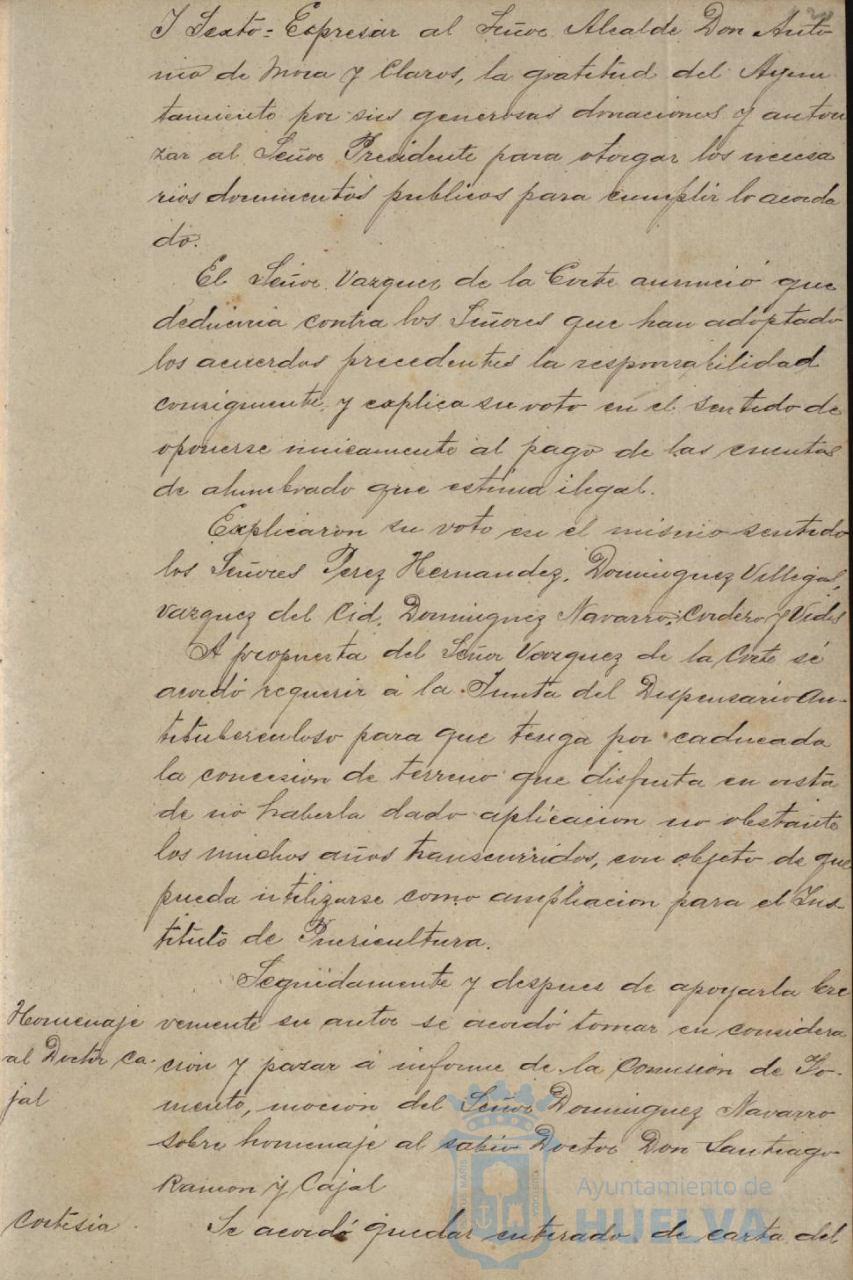 Y Sexto = Expresar al Señor Alcalde Don Anto
nio de Mora y Claros, la gratitud del Ayun
tamiento por sus generosas donaciones y autori
zar al Señor Presidente para otorgar los necesa
rios documentos publicos para cumplir lo acorda
do.
El Señor Vazquez de la Corte anunció que
deduciria contra los Señores que han adoptado
los acuerdos precedentes la responsabilidad
consiguiente, y explica su voto en el sentido de
oponerse unicamente al pago de las cuentas
de alumbrado que estima ilegal.
Explicaron su voto en el mismo sentido
los Señores Perez Hernandez, Dominguez Villegal,
Vazquez del Cid, Dominguez Navarro, Cordero y Vides
A propuesta del Señor Vazquez de la Corte se
acordó requerir á la Junta del Dispensario An-
tituberculoso para que tenga por caducada
la concesion de terreno que disfruta en vista
de no haberla dado aplicacion no obstante
los muchos años transcurridos, con objeto de que
pueda utilizarse como ampliacion para el Ins-
tituto de Puericultura.
Seguidamente y despues de apoyarla bre
Homenaje
al Doctor Ca-
jal
vemente su autor se acordó tomar en considera
cion y pazar á informe de la Comision de Fo-
mento, mocion del Señor Dominguez Navarro
sobre homenaje al sabio Doctor Don Santiago
Ramon y Cajal
Cortesia
Se acordó quedar enterado de carta del
Ayuntamiento de
HUELVA